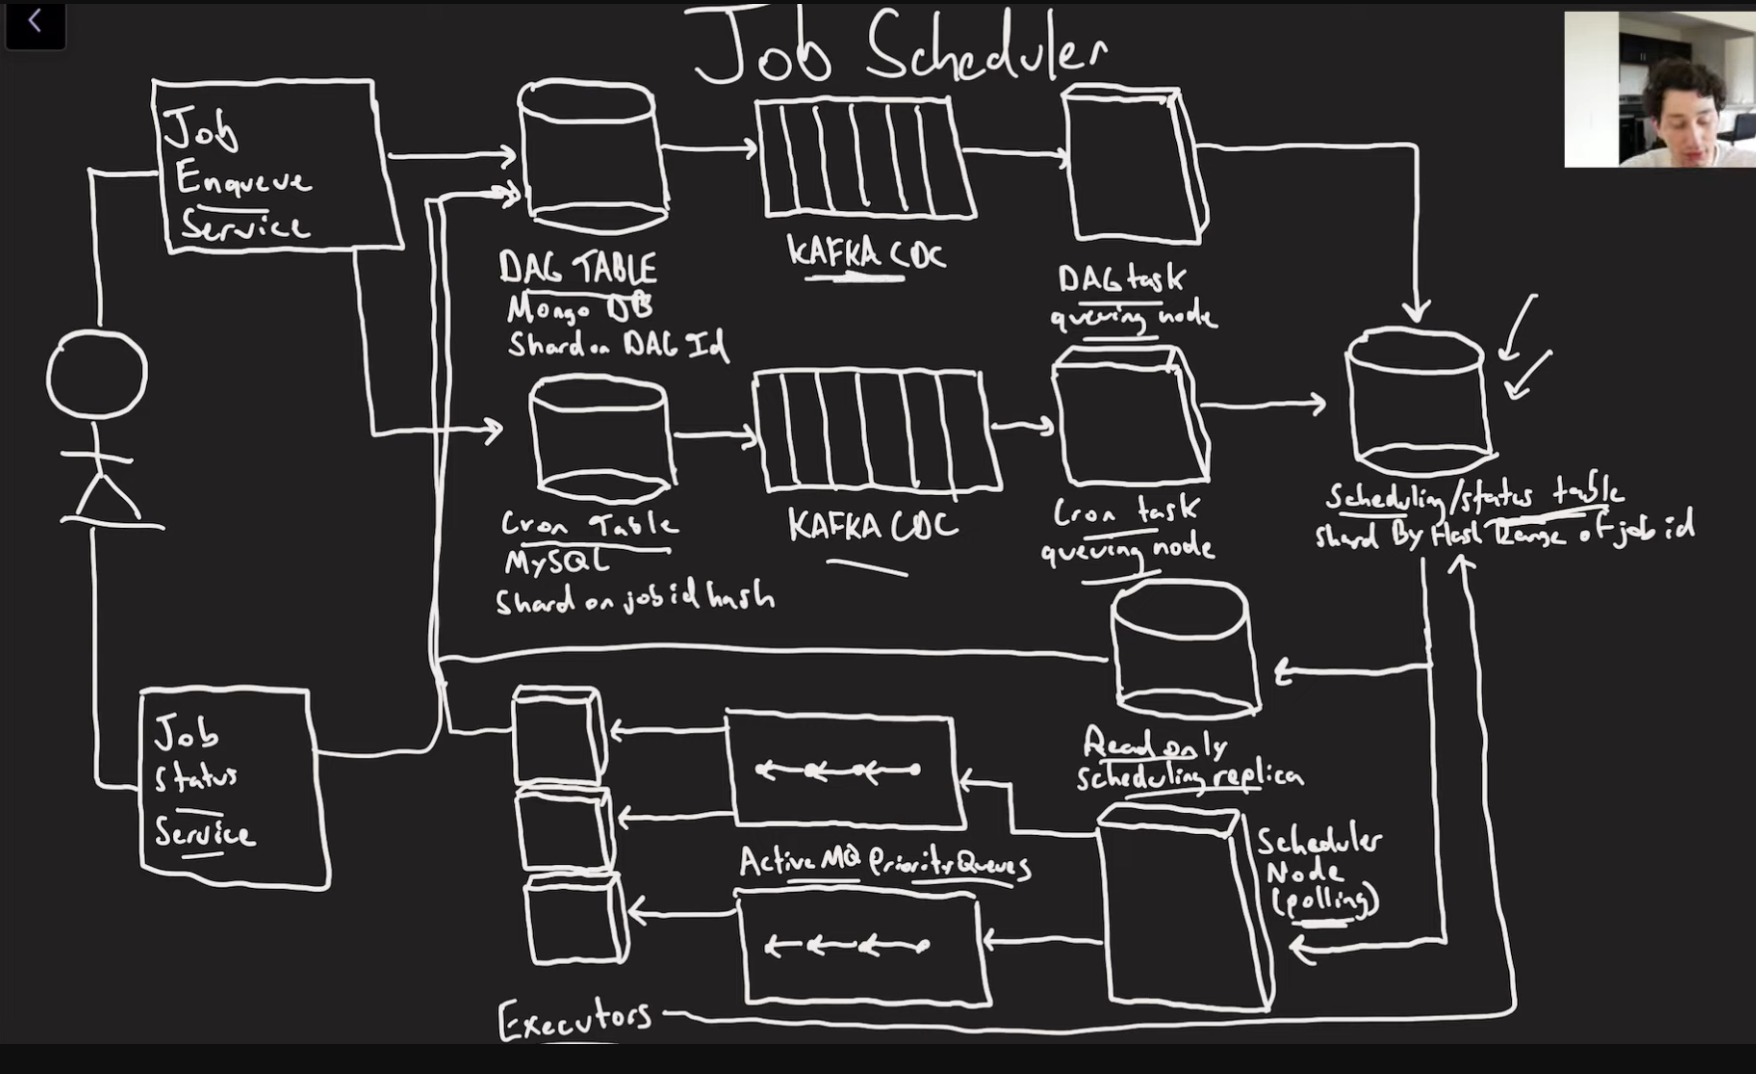 Job Scheduler
Job
Enqueue
Service
DAG TABLE
Mongo DB
Shard on DAG Id
KAFKA CDC
DAG task
queuing node
Cron Table
MySQL
Shard on job id hash
KAFKA CDC
Cron task
queuing node
Scheduling/status table
Shard By Hash Range of job id
Read only
scheduling replica
Job
Status
Service
Active MQ Priority Queues
Scheduler
Node
(polling)
Executors